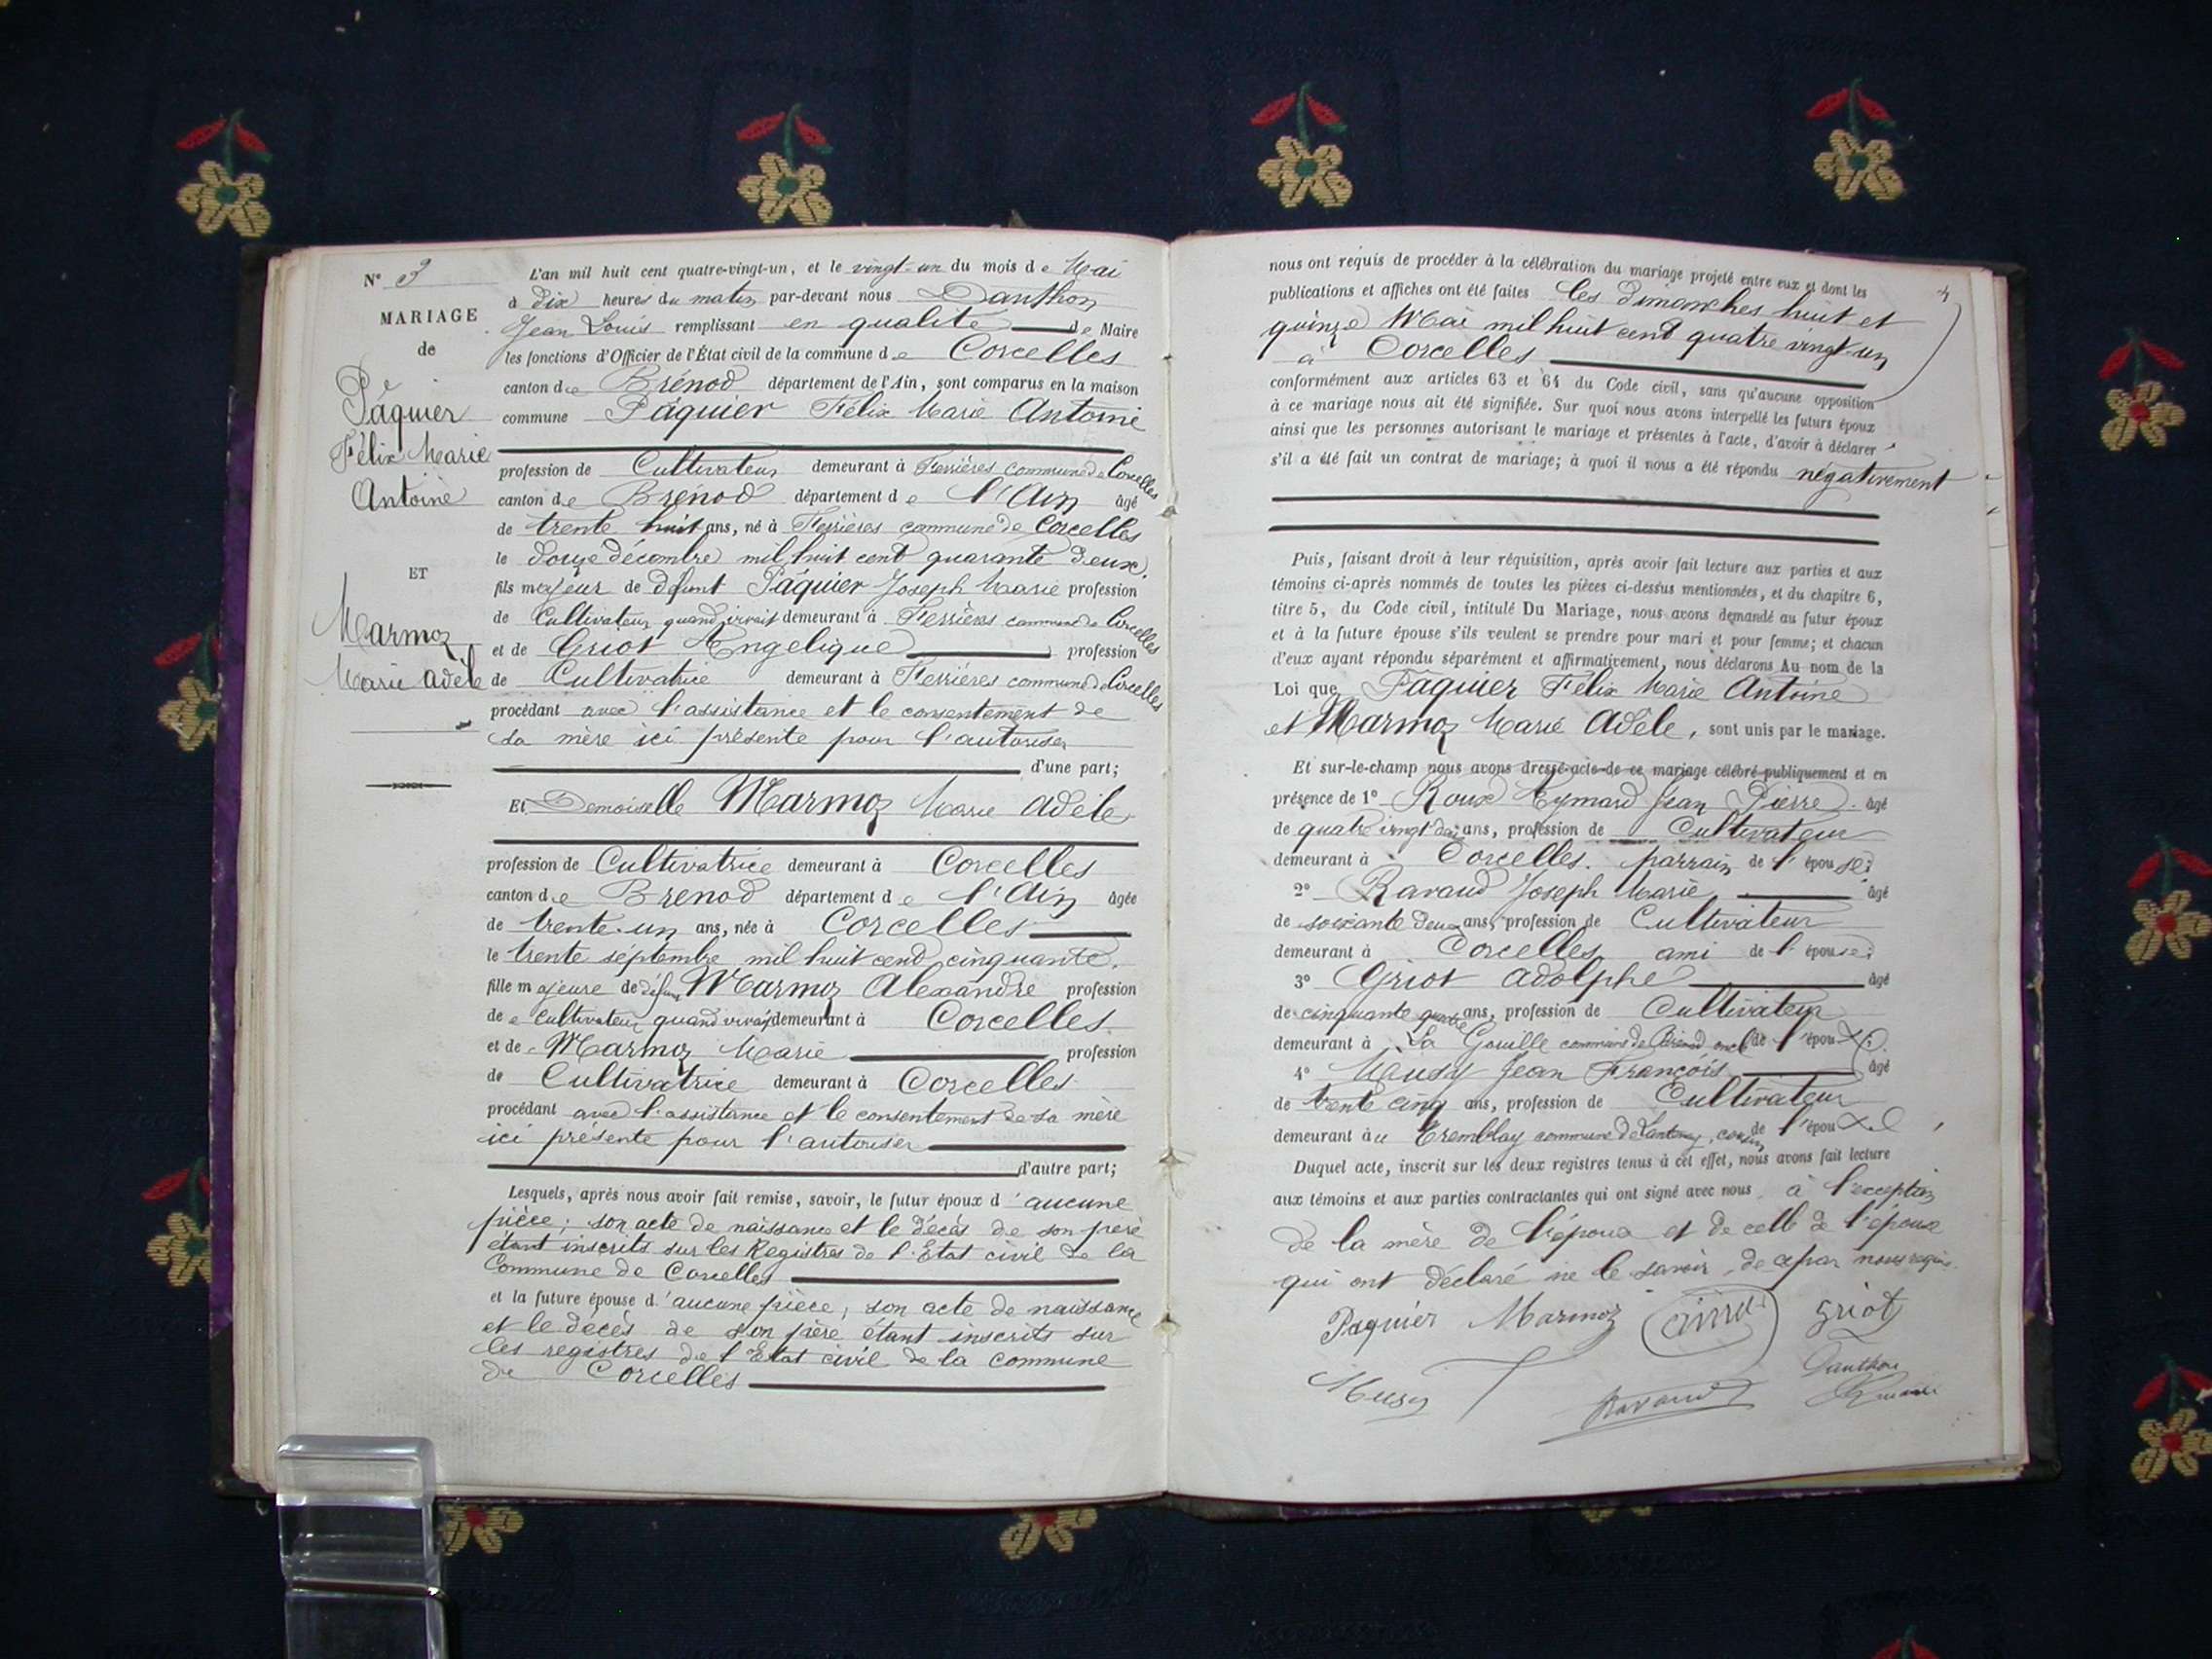 N° 3
MARIAGE
de
Pâquier
Félix Marie
Antoine
ET
Marmoz
Marie Adèle
L'an mil huit cent quatre-vingt-un, et le vingt-un du mois de Mai
à dix heures du matin par-devant nous Danthon
Jean Louis remplissant en qualité de Maire
les fonctions d'Officier de l'État civil de la commune de Corcelles
canton de Brénod département de l'Ain, sont comparus en la maison
commune Pâquier Félix Marie Antoine
profession de Cultivateur demeurant à Ferrières commune de Corcelles
canton de Brénod département de l'Ain âgé
de trente huit ans, né à Ferrières commune de Corcelles
le douze décembre mil huit cent quarante deux.
fils majeur de défunt Pâquier Joseph Marie profession
de Cultivateur quand vivait demeurant à Ferrières commune de Corcelles
et de Griot Angelique profession
de Cultivatrice demeurant à Ferrières commune de Corcelles
procédant avec l'assistance et le consentement de
sa mère ici présente pour l'autoriser
d'une part;
Et Demoiselle Marmoz Marie Adèle
profession de Cultivatrice demeurant à Corcelles
canton de Brenod département de l'Ain âgée
de trente-un ans, née à Corcelles
le trente septembre mil huit cent cinquante.
fille majeure de défunt Marmoz Alexandre profession
de cultivateur quand vivait demeurant à Corcelles
et de Marmoz Marie profession
de Cultivatrice demeurant à Corcelles
procédant avec l'assistance et le consentement de sa mère
ici présente pour l'autoriser
d'autre part;
Lesquels, après nous avoir fait remise, savoir, le futur époux d'aucune
pièce; son acte de naissance et le décès de son père
étant inscrits sur les Registres de l'Etat civil de la
Commune de Corcelles
et la future épouse d'aucune pièce; son acte de naissance
et le décès de son père étant inscrits sur
les registres de l'Etat civil de la commune
de Corcelles
4
nous ont requis de procéder à la célébration du mariage projeté entre eux et dont les
publications et affiches ont été faites les dimanches huit et
quinze Mai mil huit cent quatre vingt-un
à Corcelles
conformément aux articles 63 et 64 du Code civil, sans qu'aucune opposition
à ce mariage nous ait été signifiée. Sur quoi nous avons interpellé les futurs époux
ainsi que les personnes autorisant le mariage et présentes à l'acte, d'avoir à déclarer
s'il a été fait un contrat de mariage; à quoi il nous a été répondu négativement
Puis, faisant droit à leur réquisition, après avoir fait lecture aux parties et aux
témoins ci-après nommés de toutes les pièces ci-dessus mentionnées, et du chapitre 6,
titre 5, du Code civil, intitulé Du Mariage, nous avons demandé au futur époux
et à la future épouse s'ils veulent se prendre pour mari et pour femme; et chacun
d'eux ayant répondu séparément et affirmativement, nous déclarons Au nom de la
Loi que Pâquier Félix Marie Antoine
et Marmoz Marie Adèle, sont unis par le mariage.
Et sur-le-champ nous avons dressé acte de ce mariage célébré publiquement et en
présence de 1° Roux Eymard Jean Pierre âgé
de quatre vingt deux ans, profession de Cultivateur
demeurant à Corcelles. parrain de l'épouse;
2° Ravaud Joseph Marie âgé
de soixante deux ans, profession de Cultivateur
demeurant à Corcelles ami de l'épouse;
3° Griot Adolphe âgé
de cinquante quatre ans, profession de Cultivateur
demeurant à La Gouille commune de Brénod oncle de l'époux
4° Musy Jean François âgé
de trente cinq ans, profession de Cultivateur
demeurant au Tremblay commune de Lantenay, cousin de l'époux
Duquel acte, inscrit sur les deux registres tenus à cet effet, nous avons fait lecture
aux témoins et aux parties contractantes qui ont signé avec nous à l'exception
de la mère de l'époux et de celle de l'épouse
qui ont déclaré ne le savoir, de ce par nous requis.
Paquier Marmoz Griot
Danthon
Musy Ravaud